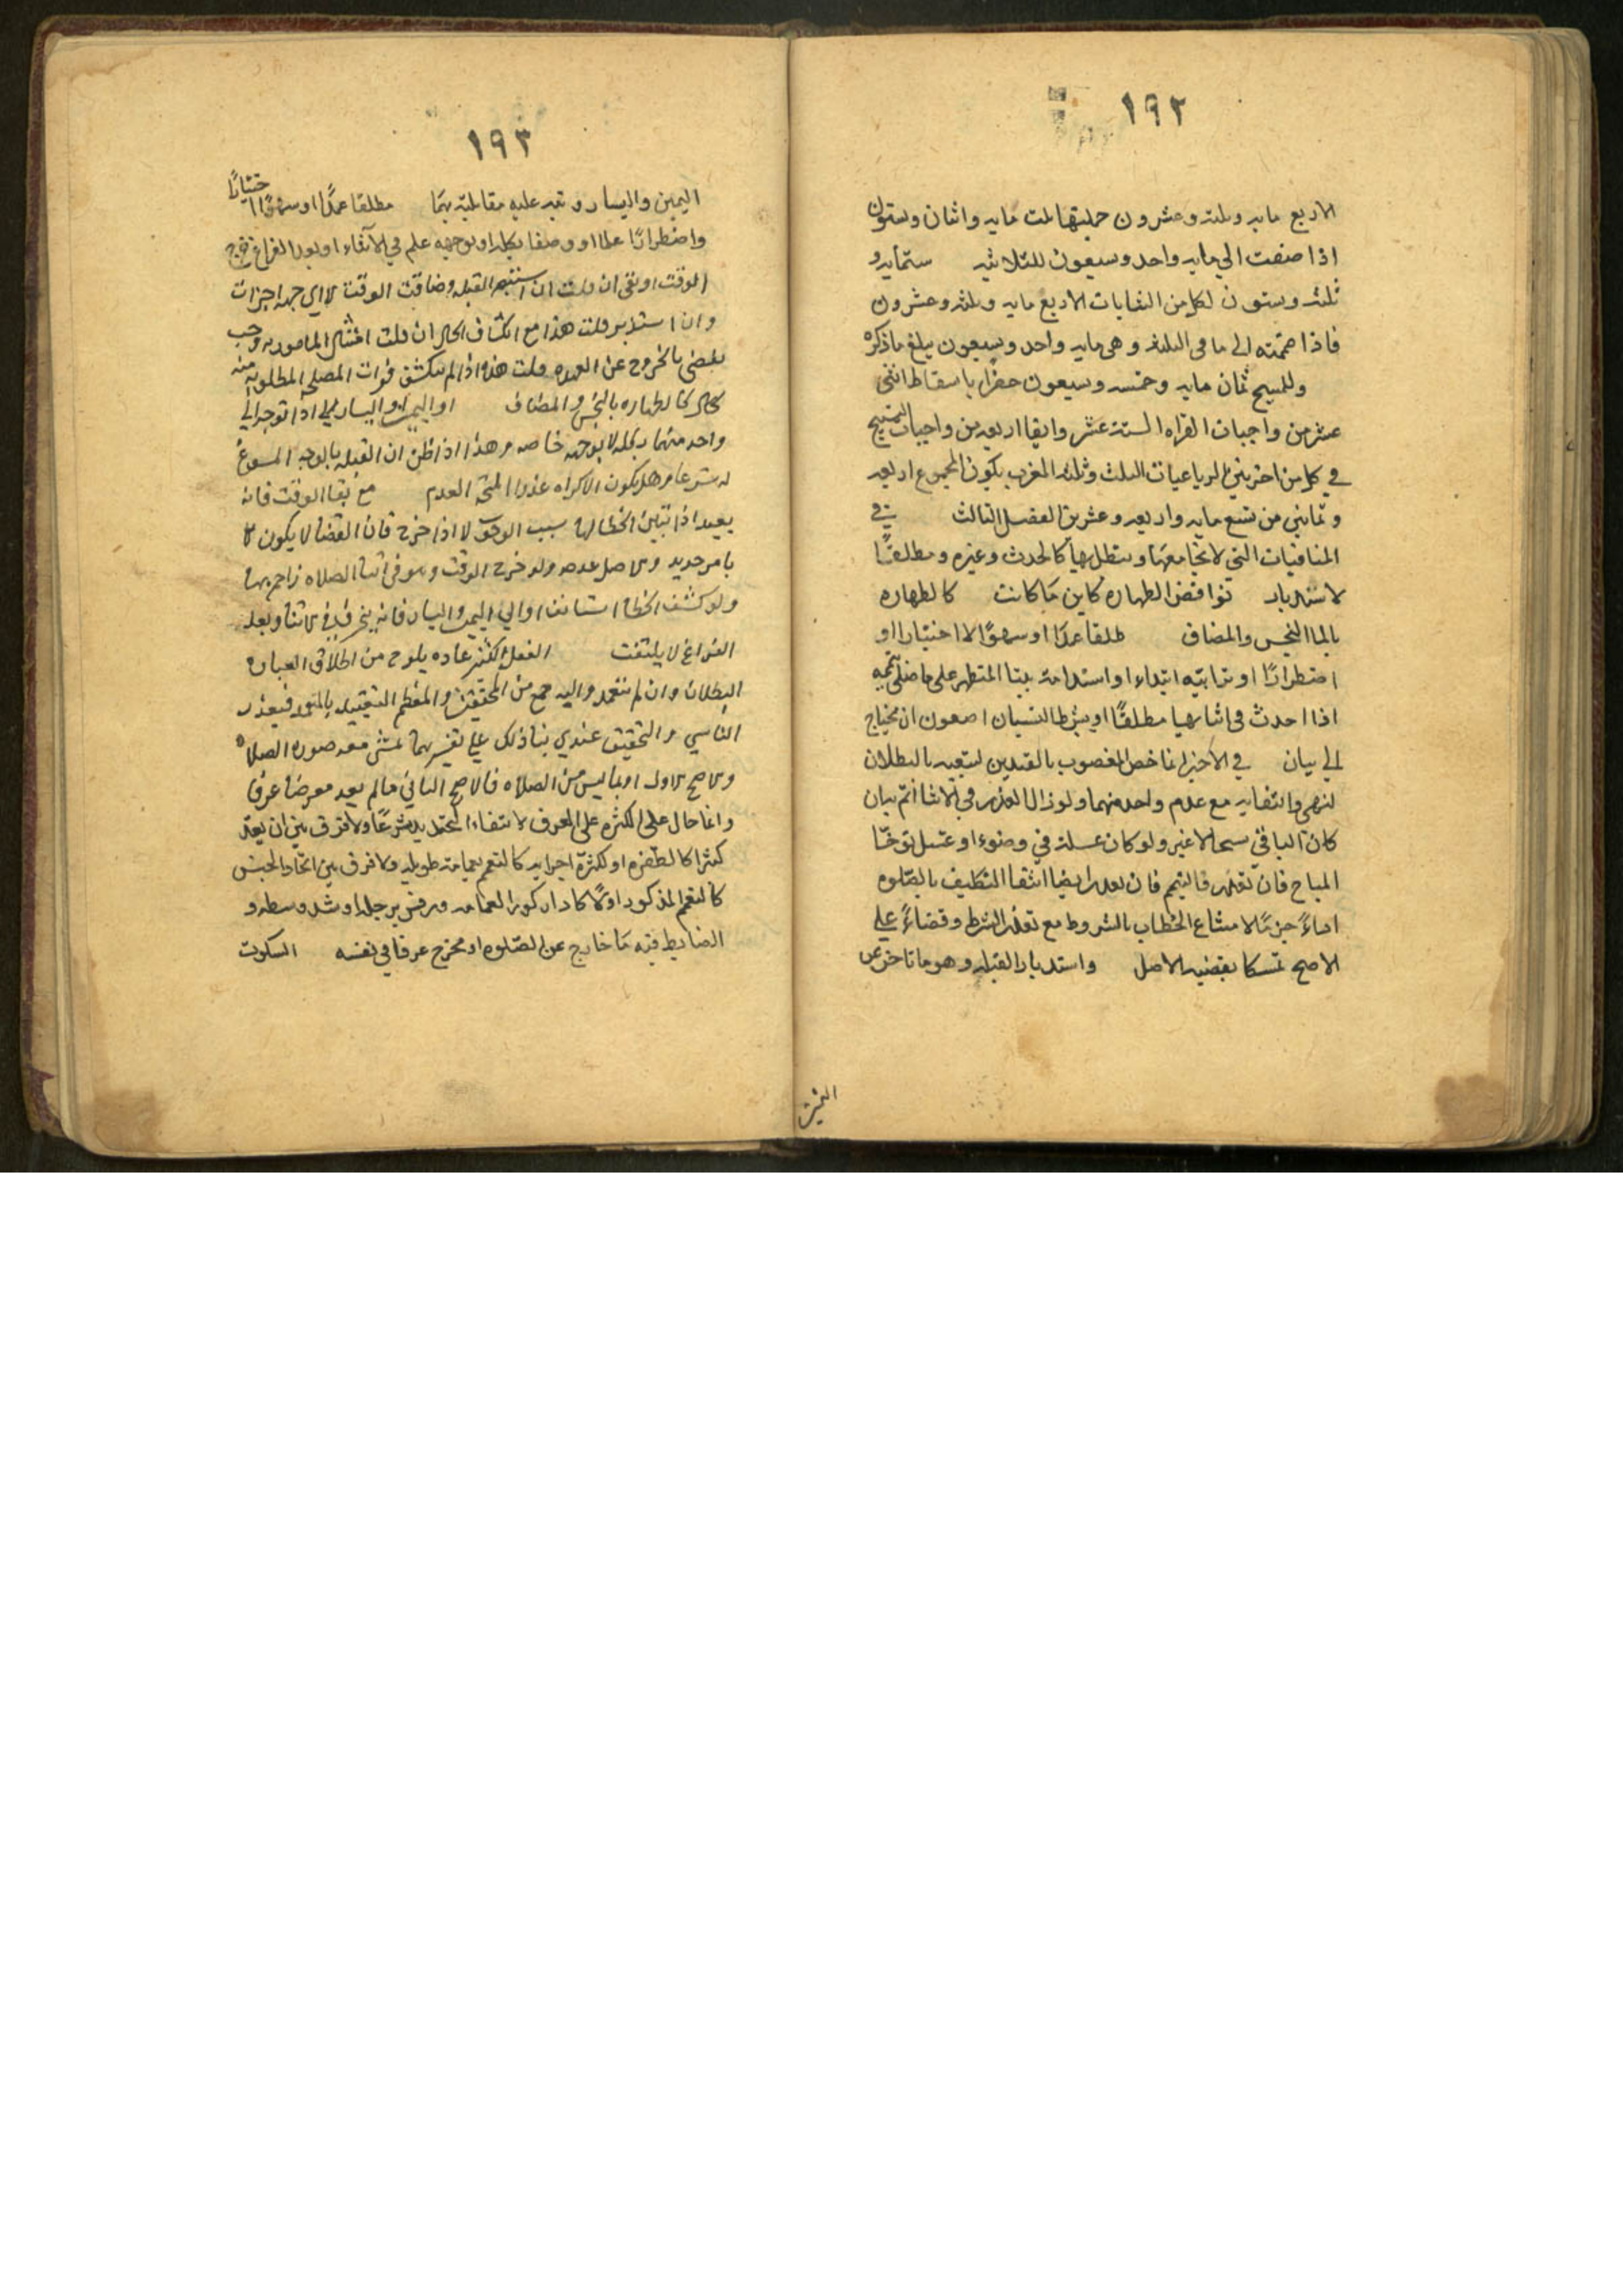 ١٩٢
الاربع مايه وثلثه وعشرون جملتها ثلث مايه واثنان وستون
اذا ضفت الي مايه واحد وسبعون للثلاثيه ستمايه و
ثلث وستون لكل من الغايات الاربع مايه وثلثه وعشرون
فاذا ضممته الي ما في الثلثه وهي مايه واحد وسبعون يبلغ ماذكره
وللمسبح ثمان مايه وخمسه وسبعون حضرا باسقاط اثني
عشر من واجبات القراه الستة عشر وابقا اربعه من واجبات التسبيح
في كل من اخرتي الرباعيات الثلث وثلثه المغرب يكون المجموع اربعه
وثماني من تسع مايه واربعه وعشرين الفصل الثالث في
المنافيات التي لا تجامعها وتبطل بها كالحدث وغيره ومطلقًا
لاستدبار نواقض الطهاره كاين ما كانت كالطهاره
بالماالنجس والمضاف مطلقا عمدًا او سهوًا لا اختيارا او
اضطرارًا او ترابيه ابتداء او استدامة بينا المتطهر على ما صلى بتيممه
اذا احدث في اثنايها مطلقًا او بشرط النسيان
الي بيان في الاخير انما خص المغصوب بالقيدين لتعيد بالبطلان
لنهي وانتفايه مع عدم واحد منهما ولو زال العذر في الاثنا اتم بيان
كان الباقي مسحا لا غير ولو كان غسله في وضوء او غسل توخّا
المباح فان تعذر فالتيمم فان تعذر ايضا انتفا التكليف بالصّلوه
اداءً جزمًا لامتناع الخطاب بالشروط مع تعذر الشرط وقضاءً على
الاصح تمسكا بقضيه الاصل واستدبار القبله وهو ما تاخر عن
اليمين
١٩٣
اليمين واليسار وتعبد عليه مقابلته بهما مطلقا عمدًا او سهوًا اختيارًا
واضطرارًا علما او وصفا بكله او بوجهه علم في الاثناء او بعد الفراغ خرج
الوقت او بقي ان قلت ان استتبه القبله وضاقت الوقت لاي جهه اجزات
وان استدبر قلت هذا مع انكشاف الحال ان قلت امتثال المامور به وجب
يقضي بالخروج عن العهده قلت هذا اذا لم ينكشف فوات المصلحه المطلوبه منه
كالطهاره بالنجس والمضاف او اليمين او اليسار اذا توجه الي
واحد منهما بكله لا بوجهه خاصه وهذا اذا ظن ان القبله بالوجه المسوغ
له شرعا وهل يكون الاكراه عذرا المتجه العدم مع بقا الوقت فانه
يعيد اذا تبين الخطا لها سبب الوجوب لا اذا خرج فان القضا لا يكون الا
بامر جديد والاصل عدمه ولو خرج الوقت وهو في اثنا الصلاه زاحم بها
ولو كشف الخطا استانف او الي اليمين واليسار فانه ينحرف في الاثنا وبعد
الفراغ لا يلتفت الفعل الكثير عاده يلوح من اطلاق العباره
البطلان وان لم يتعمد واليه جمع من المحققين والمعظم التقييد بالتعمد فيعذر
الناسي والتحقيق عندي بنا ذلك على تفسيرهما يمشي معه صوره الصلاه
والاصح الاول او بما ليس من الصلاه فالاصح الثاني ما لم يعد معرضا عرفا
وانما حال على الكثره على العرف لانتفاء التحديد شرعًا ولا فرق بين ان يعدّ
كثرا كالطفره او لكثرة اجزايه كالتعمم بعمامة طويله ولا فرق بين اتحاد الجنس
كالتعمم المذكور اولا كادار كور العمامه ورفس برجله او شد وسطه و
الضابط فيه ما خارج عن الصّلوه او مخرج عرفا في نفسه السكوت